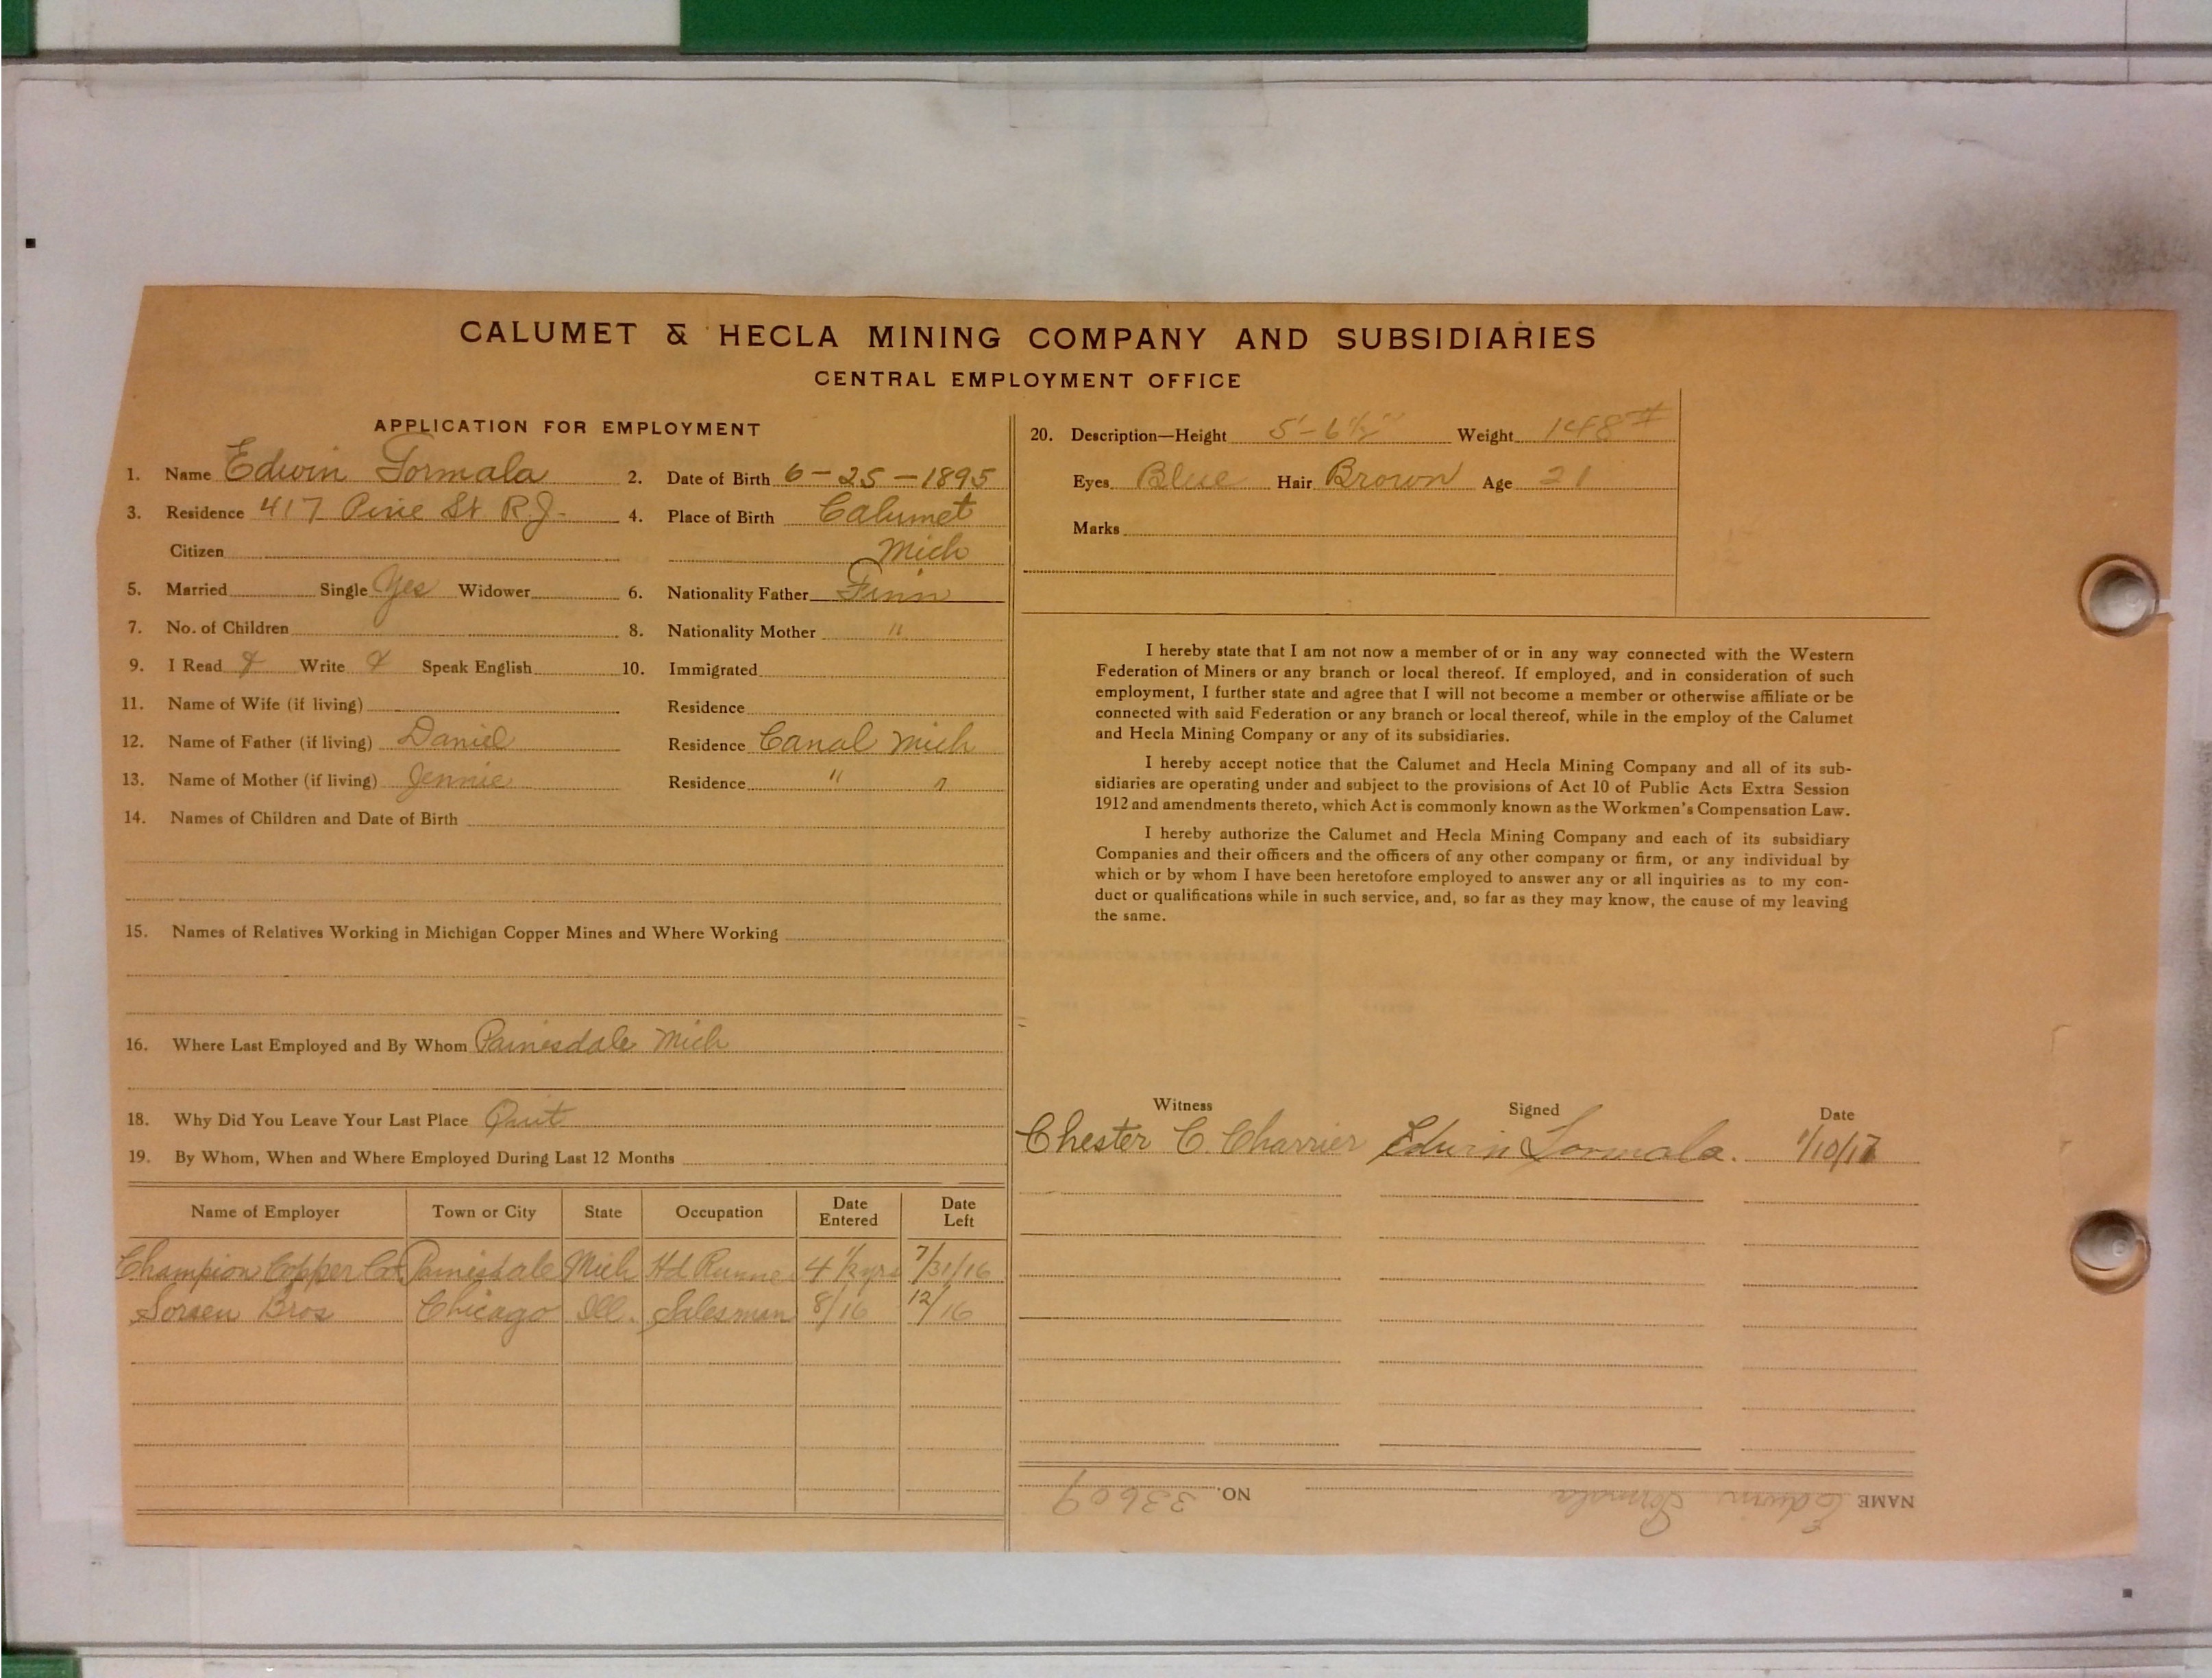 CALUMET & HECLA MINING COMPANY AND SUBSIDIARIES
CENTRAL EMPLOYMENT OFFICE
APPLICATION FOR EMPLOYMENT
1. Name Edwin Tormala 2. Date of Birth 6-25-1895
3. Residence 417 Pine St R.J. 4. Place of Birth Calumet
Citizen Mich
5. Married Single Yes Widower 6. Nationality Father Finn
7. No. of Children 8. Nationality Mother "
9. I Read Write Speak English 10. Immigrated
11. Name of Wife (if living) Residence
12. Name of Father (if living) Daniel Residence Canal Mich
13. Name of Mother (if living) Jennie Residence " "
14. Names of Children and Date of Birth
15. Names of Relatives Working in Michigan Copper Mines and Where Working
16. Where Last Employed and By Whom Painesdale Mich
18. Why Did You Leave Your Last Place Quit
19. By Whom, When and Where Employed During Last 12 Months
Name of Employer Town or City State Occupation Date Entered Date Left
Champion Copper Co. Painesdale Mich Hd Runner 4 1/2 yrs 7/31/16
Bros Chicago Ill. Salesman 8/16 12/16
20. Description—Height 5'-6 1/2" Weight 148#
Eyes Blue Hair Brown Age 21
Marks
I hereby state that I am not now a member of or in any way connected with the Western
Federation of Miners or any branch or local thereof. If employed, and in consideration of such
employment, I further state and agree that I will not become a member or otherwise affiliate or be
connected with said Federation or any branch or local thereof, while in the employ of the Calumet
and Hecla Mining Company or any of its subsidiaries.
I hereby accept notice that the Calumet and Hecla Mining Company and all of its sub-
sidiaries are operating under and subject to the provisions of Act 10 of Public Acts Extra Session
1912 and amendments thereto, which Act is commonly known as the Workmen's Compensation Law.
I hereby authorize the Calumet and Hecla Mining Company and each of its subsidiary
Companies and their officers and the officers of any other company or firm, or any individual by
which or by whom I have been heretofore employed to answer any or all inquiries as to my con-
duct or qualifications while in such service, and, so far as they may know, the cause of my leaving
the same.
Witness Signed Date
Chester C. Charrier Edwin Tormala. 1/10/17
NAME Edwin Tormala NO. 33609